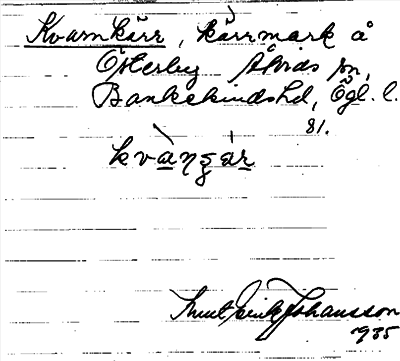 Kvarnkärr, kärrmark å
Österby Åtvids sn,
Bankekinds hd, Ögl. l.
81.
kvàŋʂár
Knut Johansson
1935